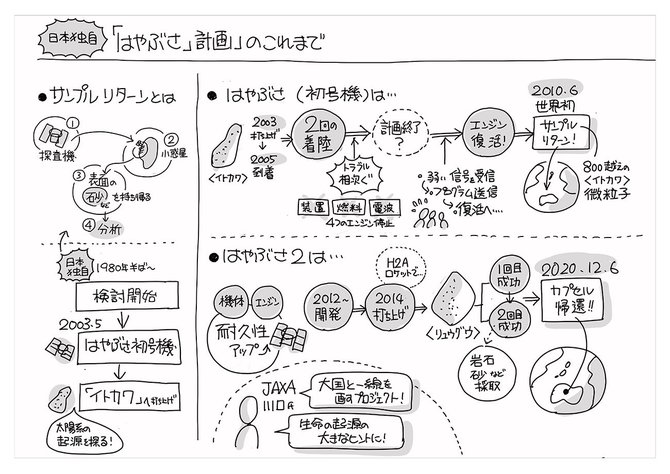 日本独自
「はやぶさ」計画」のこれまで
●サンプルリターンとは
①
探査機
②
小惑星
③
表面の
砂など
を持ち帰る
④分析
日本独自
1980年半ば〜
検討開始
2003.5
はやぶさ初号機
「イトカワ」へ打ち上げ
太陽系の
起源を探る!
●はやぶさ(初号機)は…
〈イトカワ〉
2003
打ち上げ
2005
到着
2回の
着陸
トラブル
相次ぐ
装置
燃料
電波
4つのエンジン停止
計画終了
?
・弱い信号を受信
・プログラム送信
・復活へ…
エンジン
復活!
2010.6
世界初
サンプル
リターン!
800超えの
〈イトカワ〉
微粒子
●はやぶさ2は…
機体
エンジン
耐久性
アップ
2012〜
開発
H2A
ロケットで…
2014
打ち上げ
〈リュウグウ〉
1回目
成功
2回目
成功
岩石
砂など
採取
2020.12.6
カプセル
帰還!!
JAXA
川口氏
大国と一線を
画すプロジェクト!
生命の起源の
大きなヒントに!